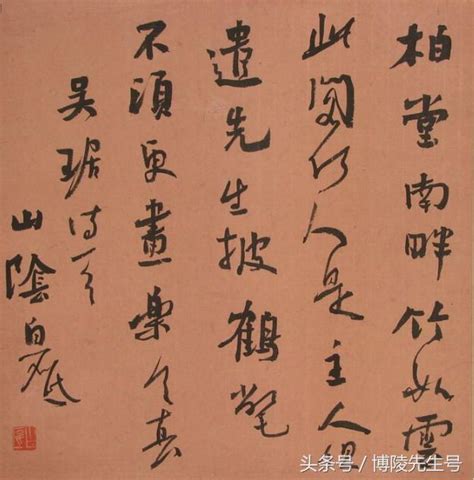 柏堂南畔竹如雲
此閣何人是主人但
遣先生披鶴氅
不須更畫樂天真
吴琚诗一首
山陰白砥
头条号 / 博陵先生号